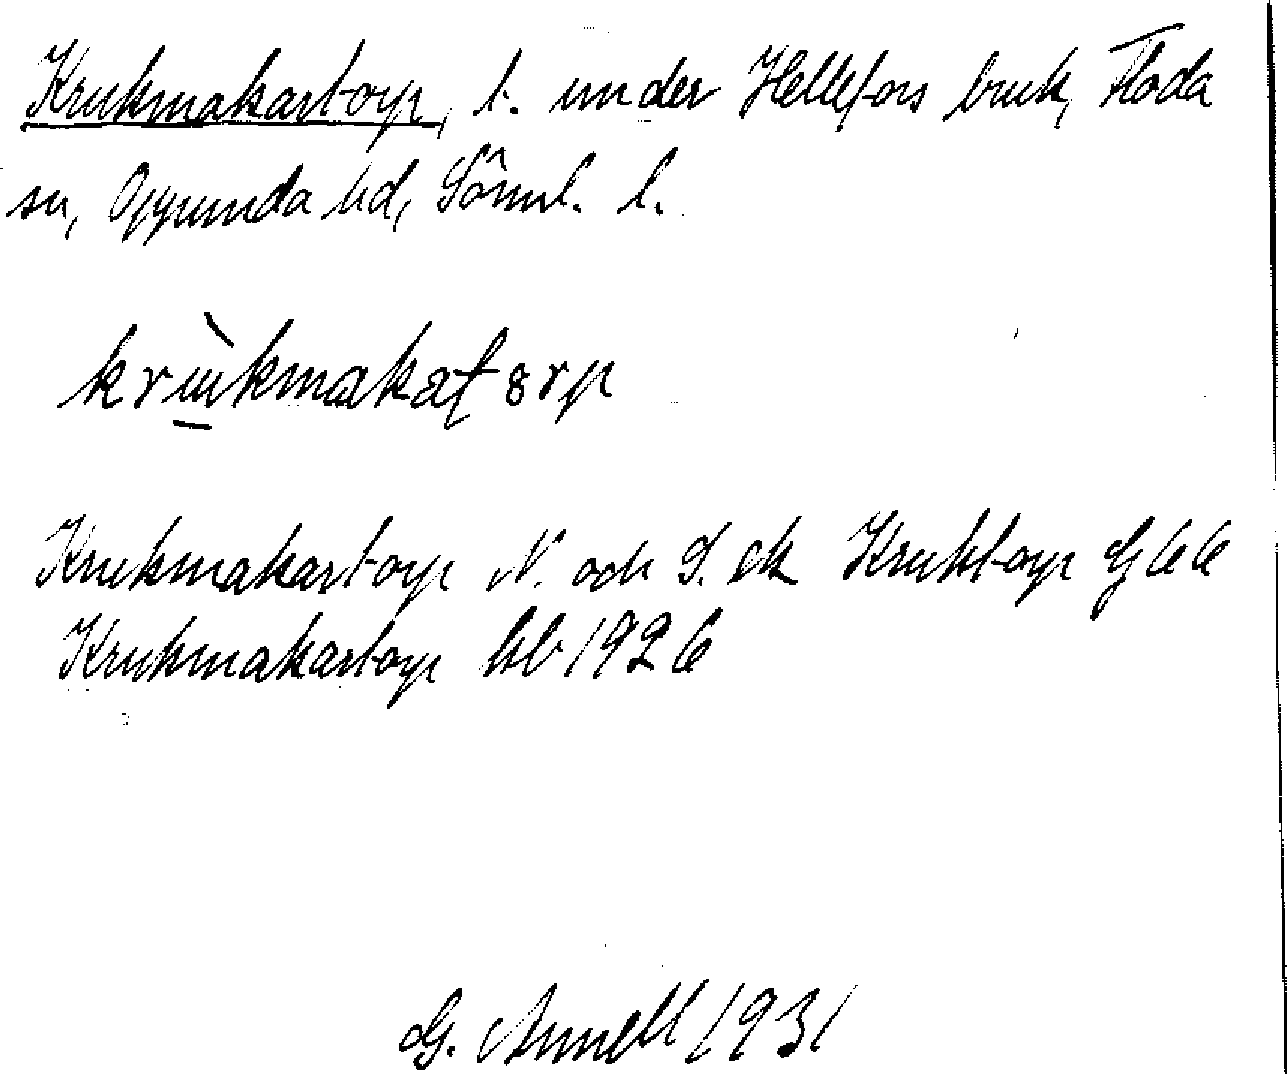 Krukmakartorp, t. under Hellefors bruk, Floda
sn, Oppunda hd, Söml. l.
Krukmakartorp N. och S. ek Kruktorp G 66
Krukmakartorp hb 1926
G. Annell 1931